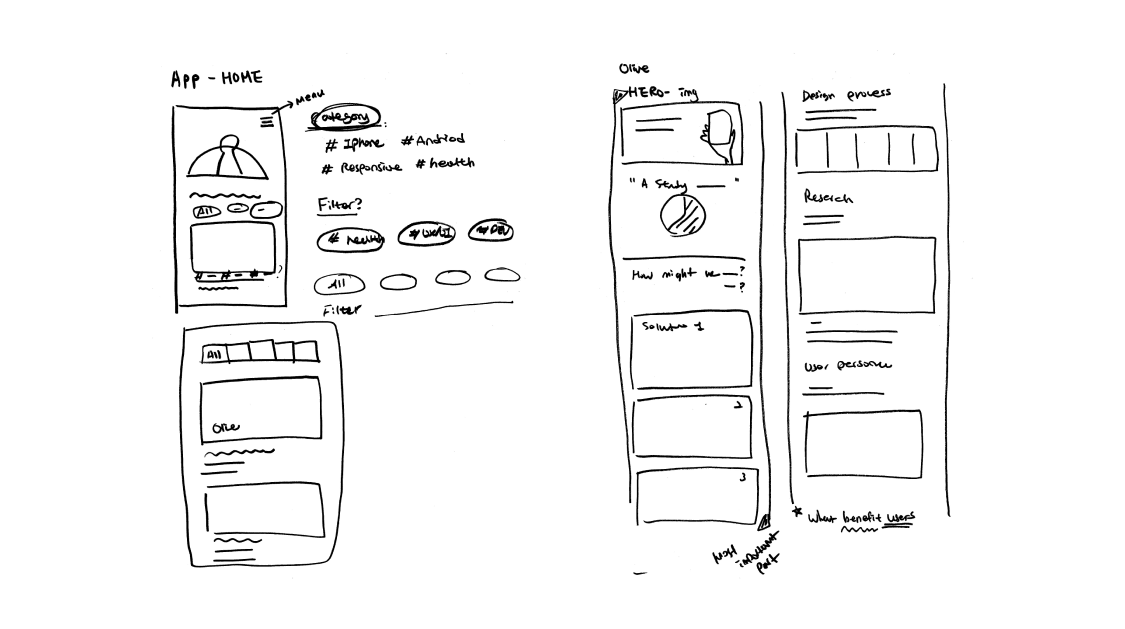 App - HOME
Menu
Category
# Iphone # Andriod
# Responsive # health
Filter?
# health
All
All
Filter
# - # - # - ?
All
Olive
Olive
HERO- img
" A Study — "
How might we —?
—?
Solution 1
2
3
Most
important
part
Design process
Reserch
User persona
* What benefit users